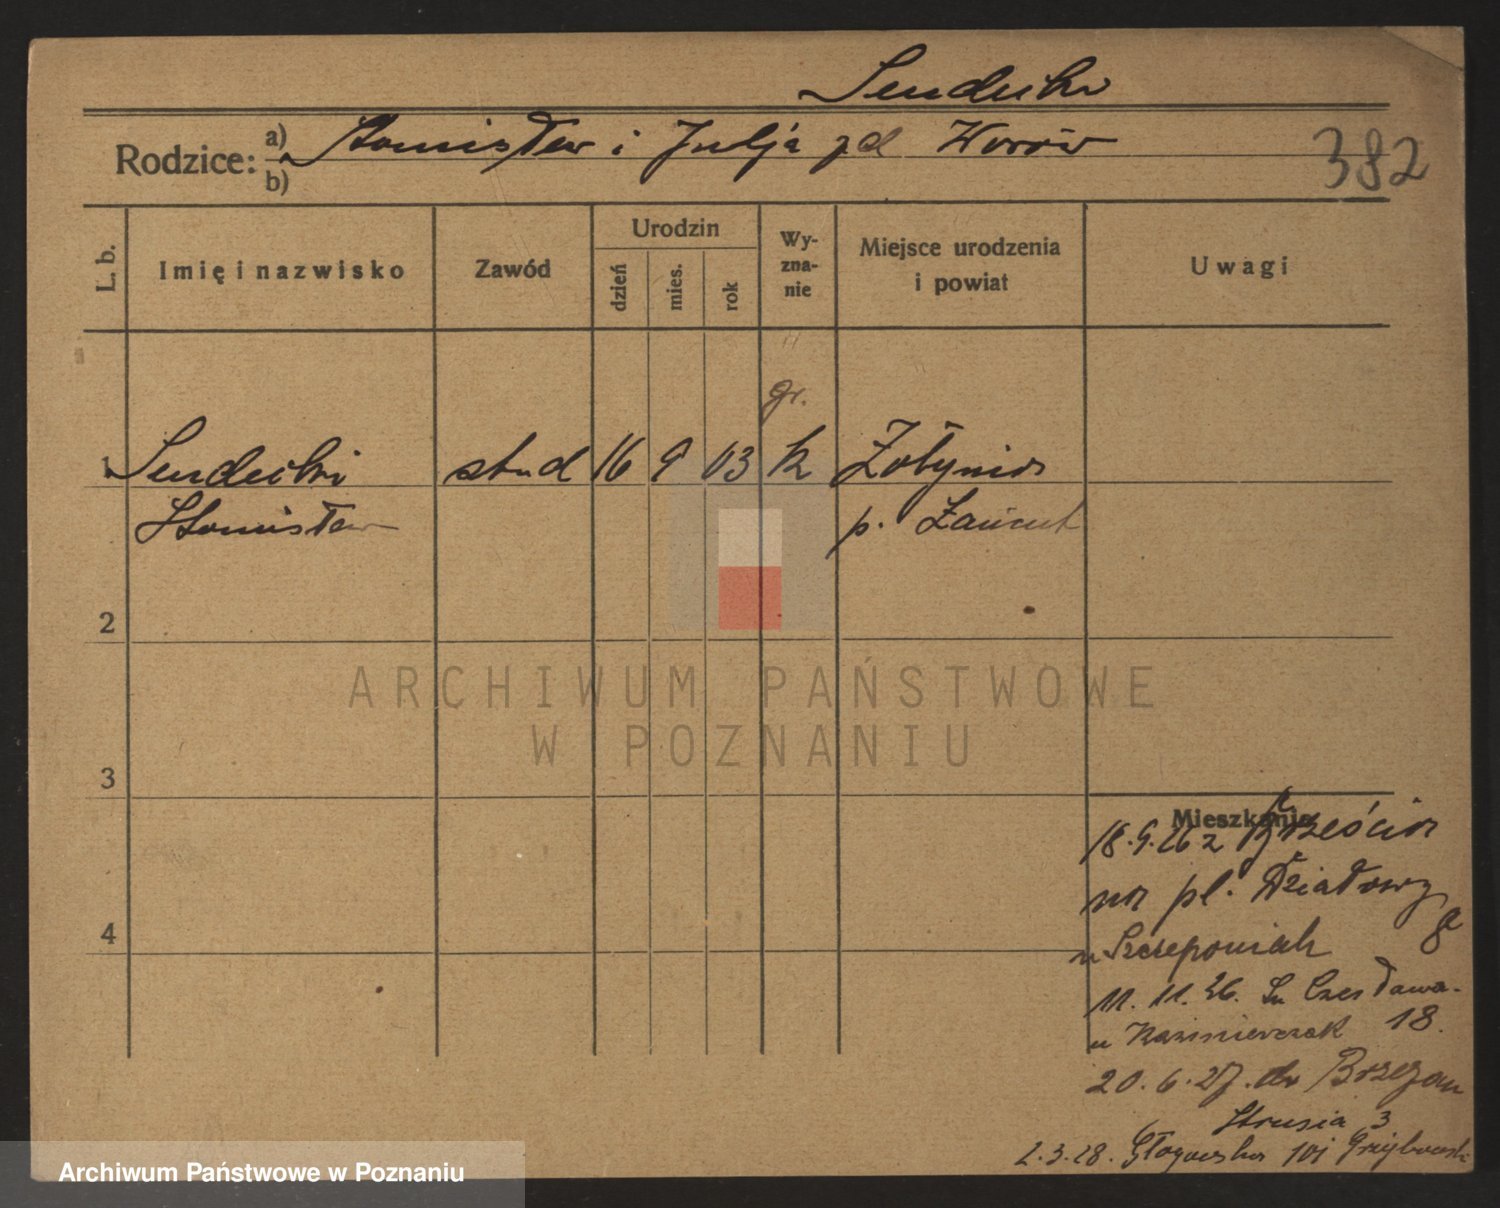 Sendecki
Rodzice: a) Stanisław i Julja zd Worów
b)
382
L. b.
Imię i nazwisko
Zawód
Urodzin
dzień
mies.
rok
Wy-
zna-
nie
Miejsce urodzenia
i powiat
Uwagi
gr.
1 Sendecki stud 16 9 03 k Żołynia
Stanisław p. Łańcut
2
ARCHIWUM PAŃSTWOWE
W POZNANIU
3
Mieszkanie
18.9.26 z Brześcia
na pl. Działowy
8
u Szczepaniak
4
11. 11. 26. Czesława
u Kazmierczak 18.
20. 6. 27. do Brzezan
Strusia 3
2.3.28. Głogowska 101
Archiwum Państwowe w Poznaniu